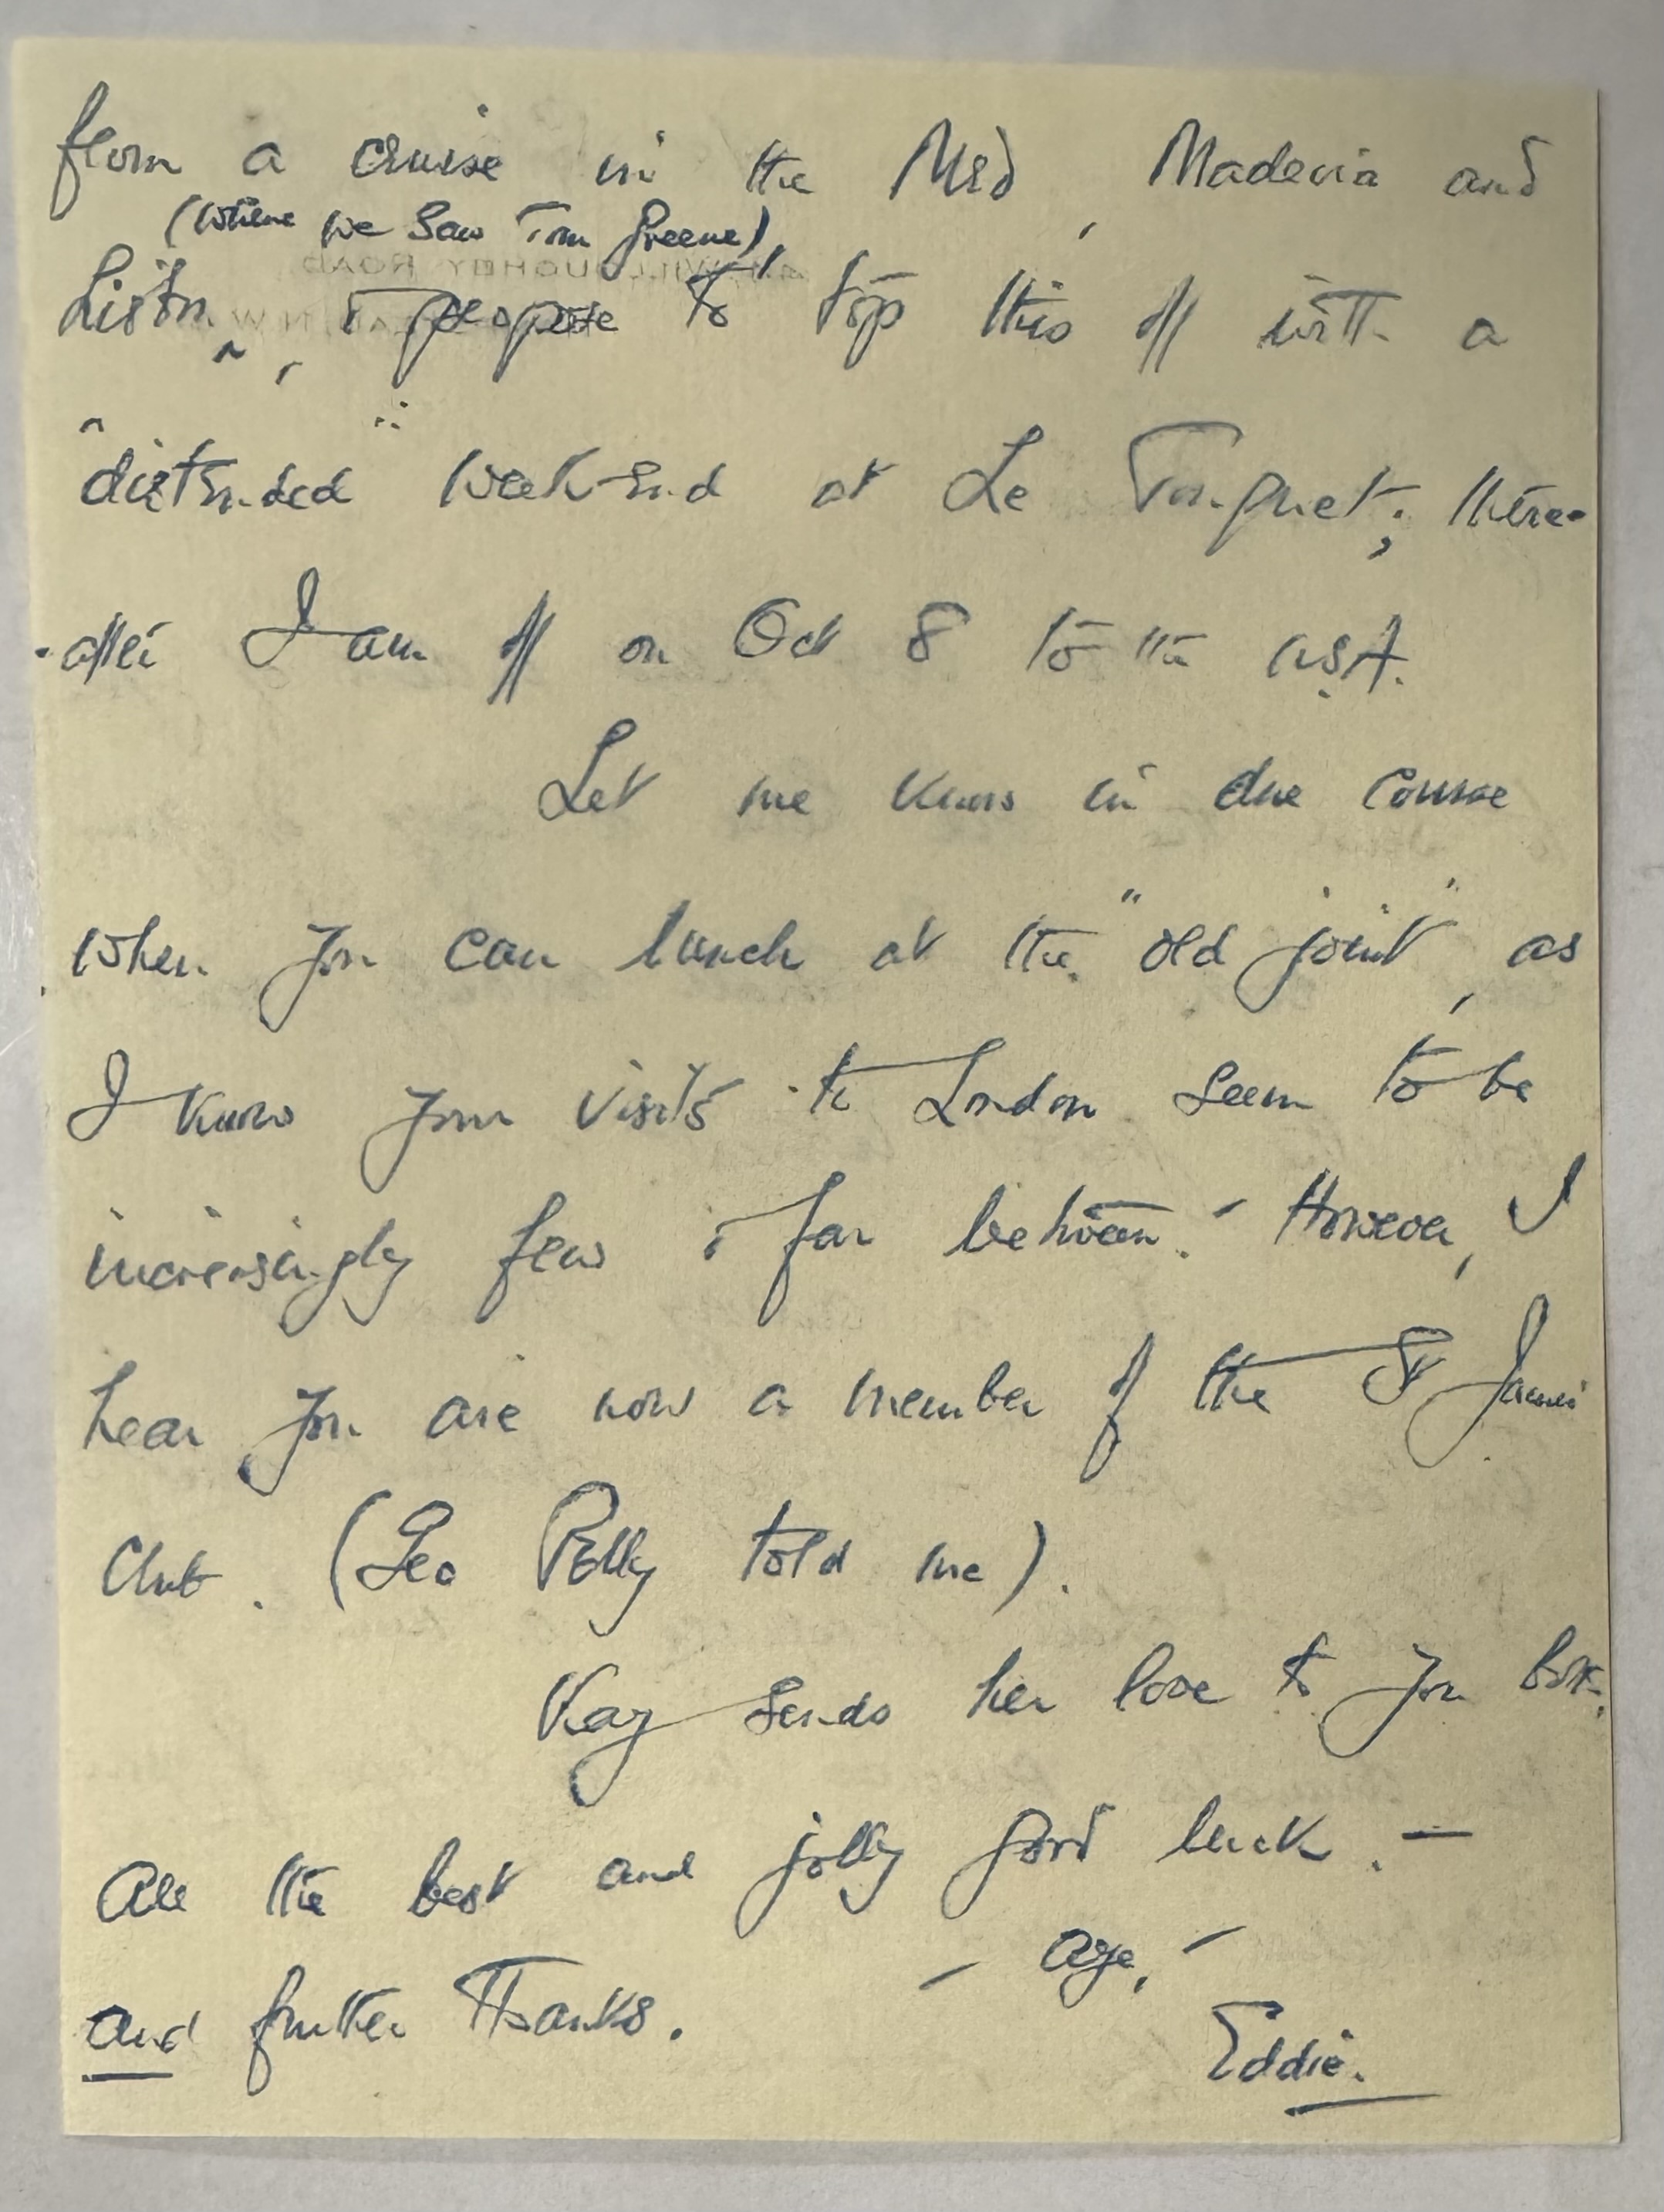 from a cruise in the Med, Madeira and
(where we saw Tom Greene),
Lisbon, & propose to top this off with a
"distended" week-end at Le Touquet; there-
-after I am off on Oct 8 to the U.S.A.
Let me know in due course
when you can lunch at the "old joint", as
I know your visits to London seem to be
increasingly few & far between. - However, I
hear you are now a member of the St James'
Club. (Leo Polly told me).
Kay sends her love to you both.
All the best and jolly good luck. -
- aye, -
and further Thanks.
Eddie.